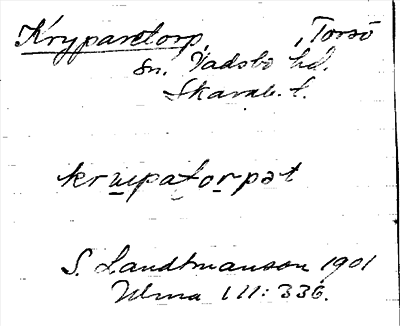 Kryparetorp, Torsö
sn. Vadsbo hd.
Skarab. l.
krɯpatorpət
S. Landtmanson 1901
Ulma 111:336.